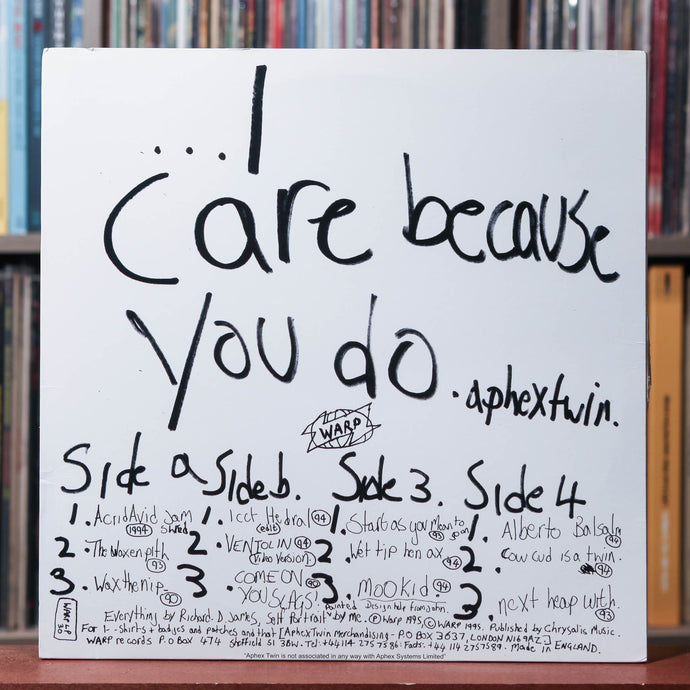 ...I
Care because
you do. aphextwin.
WARP
Side a
1. AcridAvid Jam
1994 Shred
2. The Waxen pith 93
3. Wax the Nip. 90
Side b.
1. Icct Hedral 94
(edit)
2. VENTOLIN 94
(Video Version)
3. COME ON
YOU SLAGS! 90
Side 3.
1. Start as you Mean to go on 93
2. Wet tip hen ax. 94
3. Mookid. 94
Side 4
1. Alberto Balsalm 94
2. Cow cud is a twin. 94
3. next heap with. 93
WARP LP 30
Everything by Richard. D. James, Self Portrait painted by me. Design help from john. Ⓟ Warp 1995, Ⓒ WARP 1995. Published by Chrysalis Music.
For T-Shirts + badges and patches and that [Aphex Twin Merchandising - P.O BOX 3637, LONDON N16 9AZ.]
WARP records P.O BOX 474 Sheffield S1 3BW. Tel: +44 114 275 7586: Facts. +44 114 2757589. Made in ENGLAND.
"Aphex Twin is not associated in any way with Aphex Systems Limited"